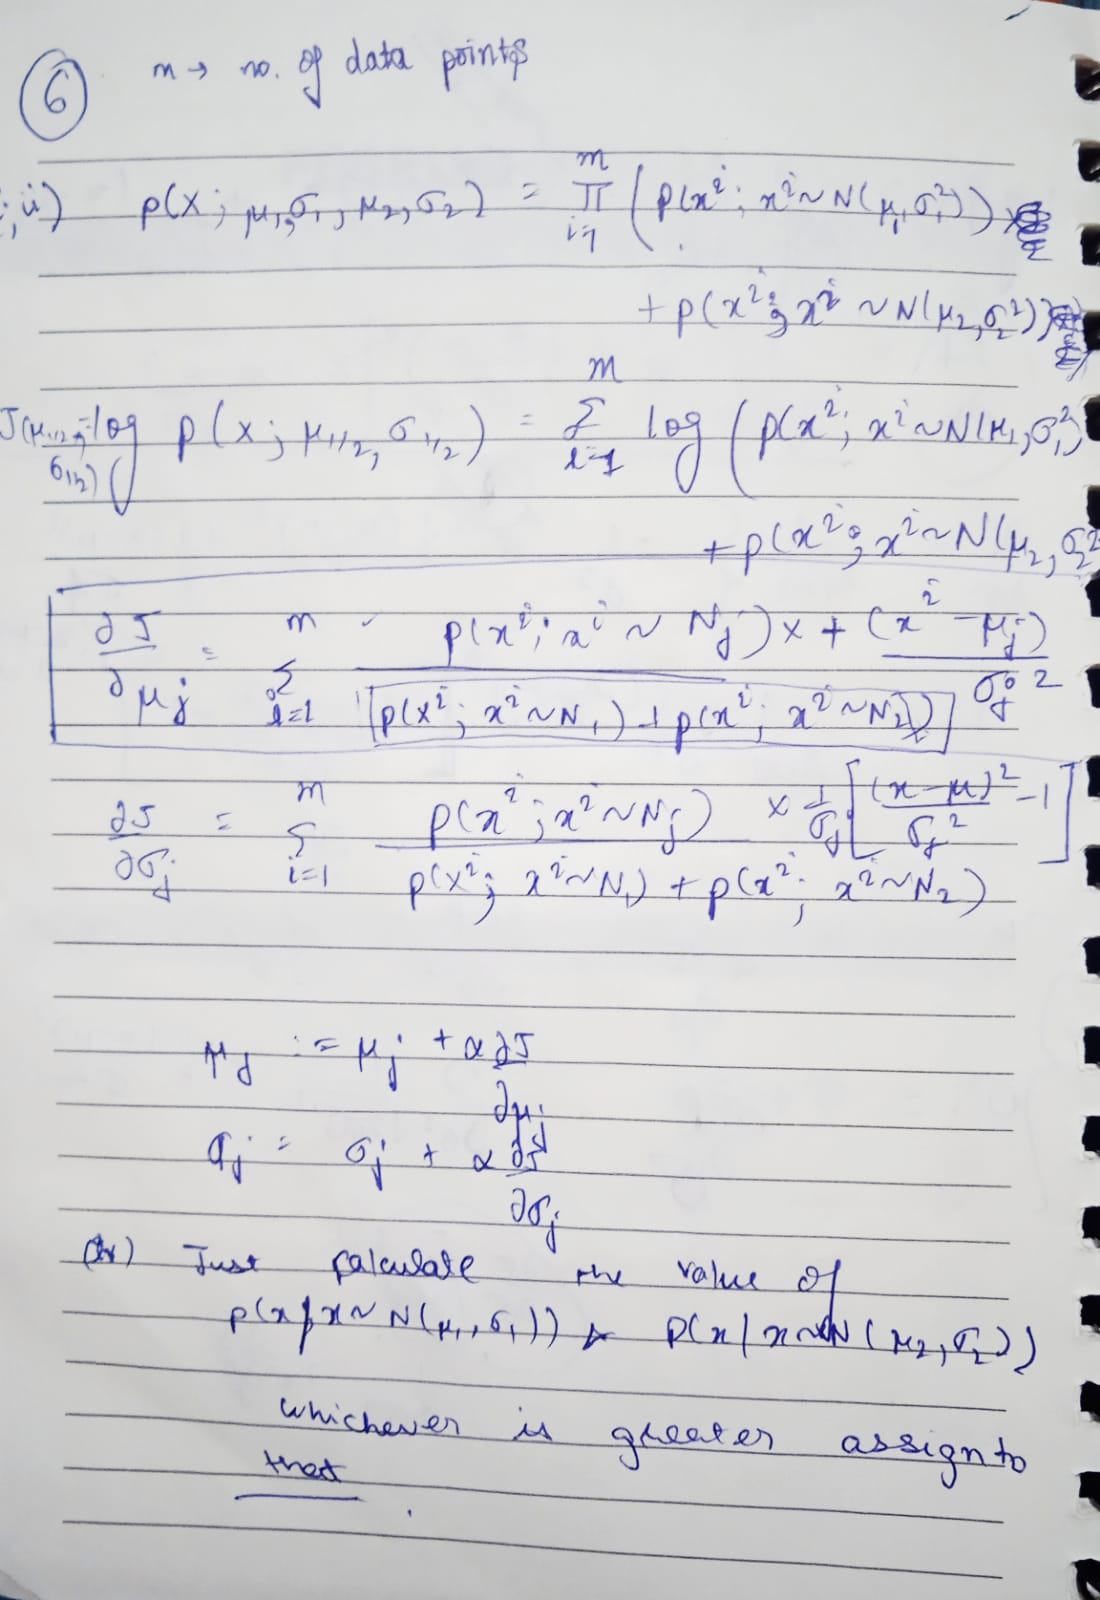 6
m → no. of data points
i, ii) p(X; μ₁, σ₁, μ₂, σ₂) = ∏ᵢ₌₁ᵐ ( p(xⁱ; xⁱ ~ N(μ₁, σ₁²))
+ p(xⁱ; xⁱ ~ N(μ₂, σ₂²))
J(μ₁/₂, σ₁/₂) = log p(x; μ₁/₂, σ₁/₂) = Σᵢ₌₁ᵐ log ( p(xⁱ; xⁱ ~ N(μ₁, σ₁²)
+ p(xⁱ; xⁱ ~ N(μ₂, σ₂²
∂J/∂μⱼ = Σᵢ₌₁ᵐ p(xⁱ; xⁱ ~ Nⱼ) / [p(xⁱ; xⁱ ~ N₁) + p(xⁱ; xⁱ ~ N₂)] × + (xⁱ - μⱼ)/σⱼ²
∂J/∂σⱼ = Σᵢ₌₁ᵐ p(xⁱ; xⁱ ~ Nⱼ) / p(xⁱ; xⁱ ~ N₁) + p(xⁱ; xⁱ ~ N₂) × 1/σⱼ [(x - μ)²/σⱼ² - 1]
μⱼ := μⱼ + α ∂J/∂μⱼ
σⱼ = σⱼ + α ∂J/∂σⱼ
Just calculate the value of
p(x/x ~ N(μ₁, σ₁)) & p(x/x ~ N(μ₂, σ₂))
whichever is greater assign to
that